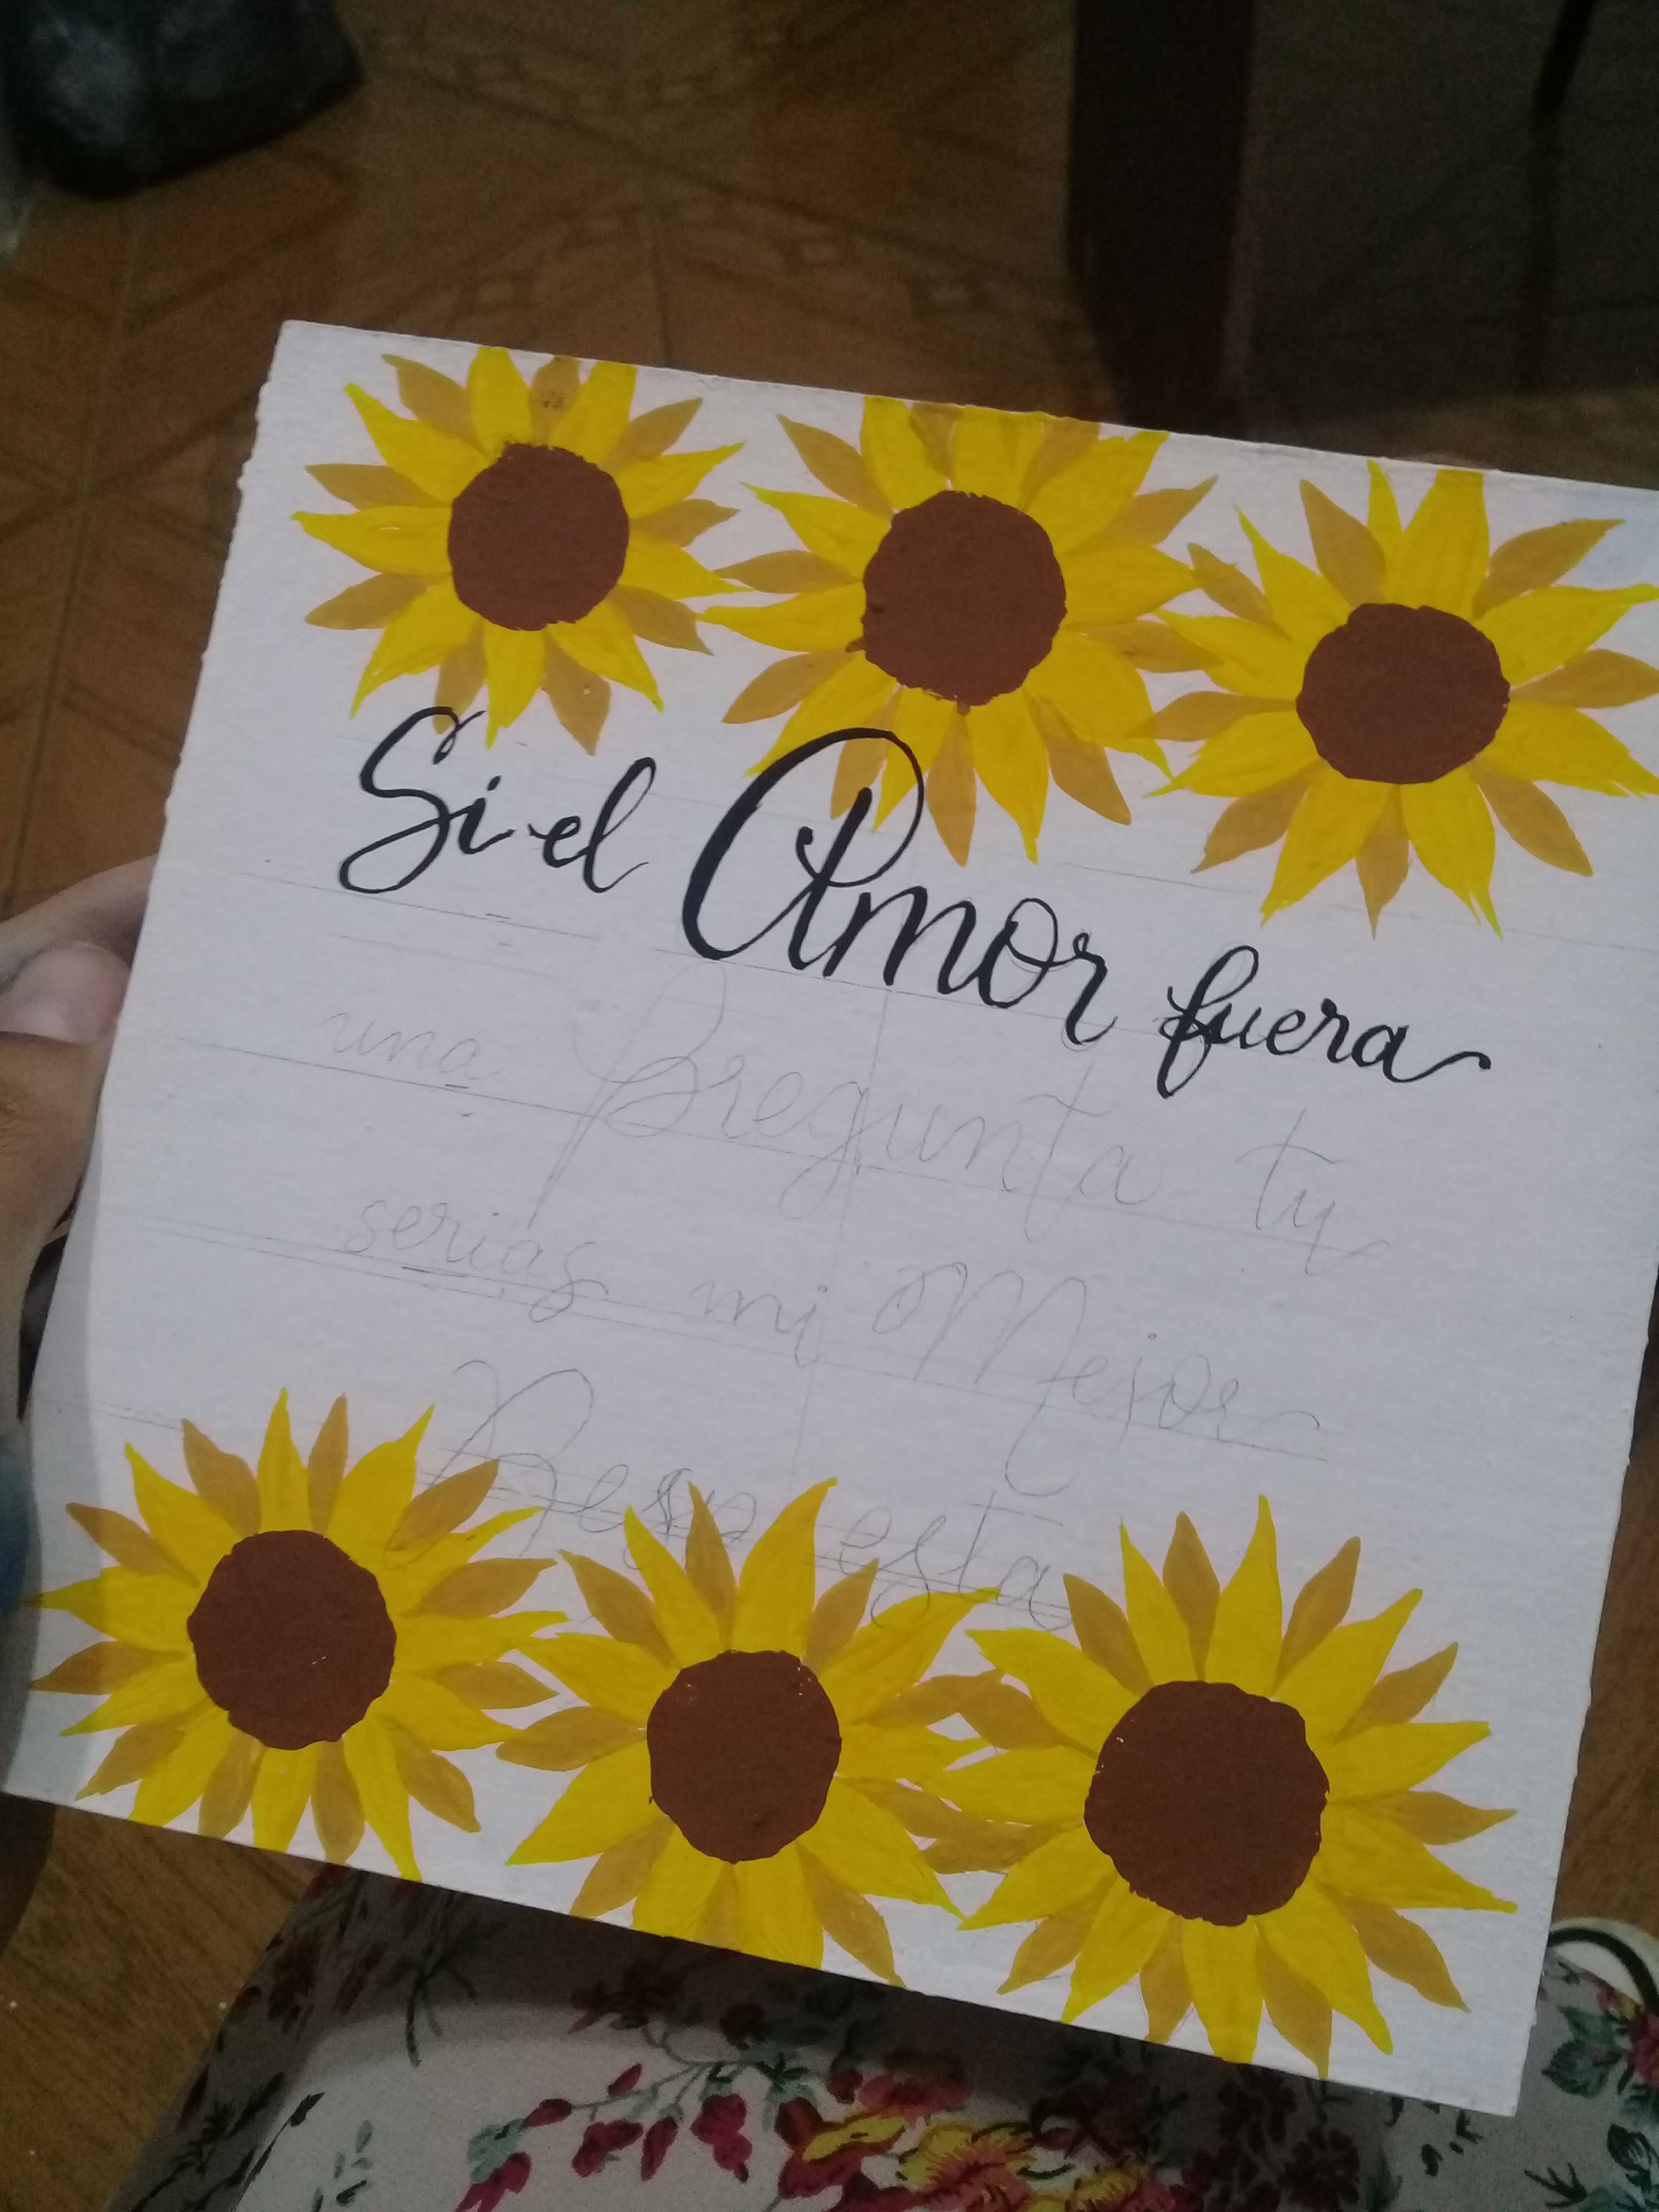 Si el Amor fuera
una Pregunta tu
serias mi Mejor
Respuesta